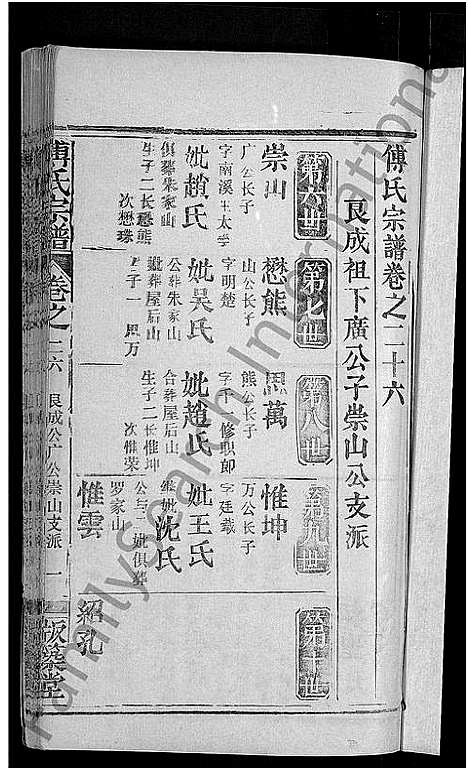 傅氏宗譜卷之二十六
艮成祖下廣公子崇山公支派
第六世
第七世
第八世
第九世
第十世
崇山
广公長子
字南溪王太学
妣趙氏
俱葬朱家山
生子二长懋熊
次懋珠
懋熊
山公長子
字明楚
妣吴氏
公葬朱家山
妣葬屋后山
生子一思万
思萬
熊公长子
字千一修职郎
妣趙氏
合葬屋后山
生子二长惟坤
次惟荣
惟坤
万公长子
字廷载
妣王氏
继妣沈氏
公与二妣俱葬
罗家山
惟雲
紹孔
傅氏宗譜
卷之二六
艮成公广公崇山支派
一
版築堂
FamilySearch International